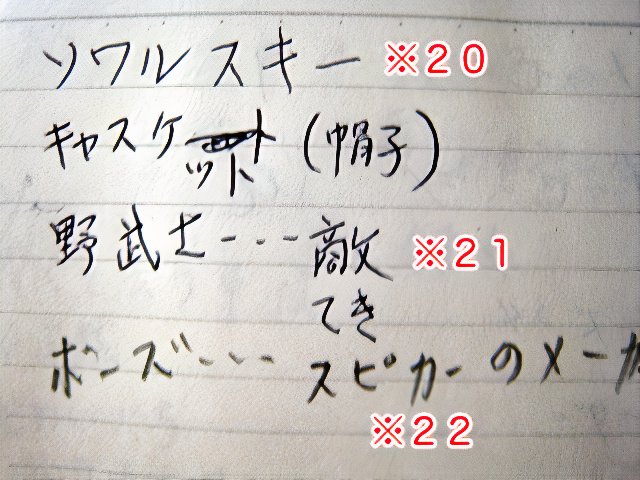 ソワルスキー ※20
キャスケット(帽子)
野武士---敵 ※21
てき
ボーズ--- スピカーのメーカ
※22